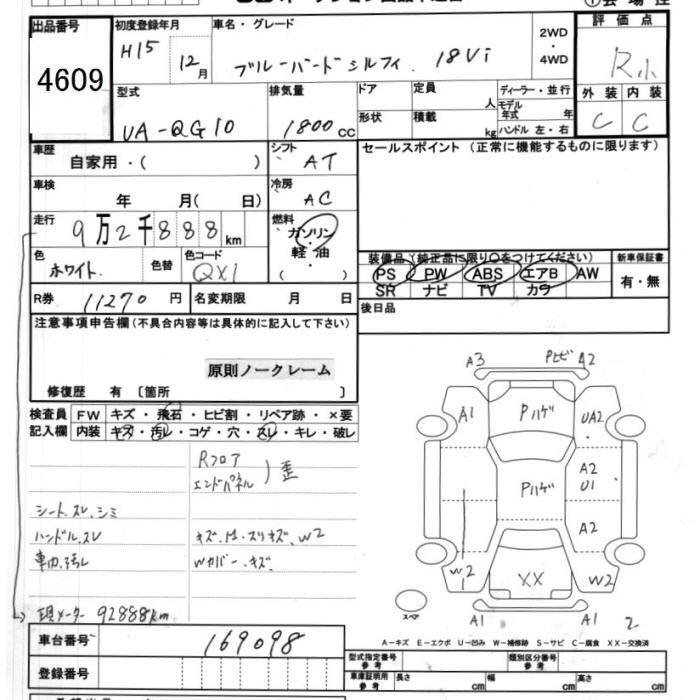 出品番号
4609
初度登録年月
H15
12月
車名・グレード
ブルーバードシルフィ. 18Vi
2WD
・
4WD
評価点
R小
外装 内装
C C
型式
UA-QG10
排気量
1800cc
ドア
形状
定員
人
積載
kg
ディーラー・並行
モデル年式 年
ハンドル 左・右
車歴
自家用・( )
シフト
AT
セールスポイント(正常に機能するものに限ります)
車検
年 月( 日)
冷房
AC
走行
9万2千888km
燃料
ガソリン
軽油
( )
色
ホワイト.
色替
色コード
QX1
装備品(純正品に限り○をつけてください)
PS PW ABS エアB AW
SR ナビ TV カワ
新車保証書
有・無
R券 11270 円
名変期限 月 日
後日品
注意事項申告欄(不具合内容等は具体的に記入して下さい)
原則ノークレーム
修復歴 有 〔箇所 〕
検査員記入欄
FW キズ・飛石・ヒビ割・リペア跡・×要
内装 キズ・汚レ・コゲ・穴・スレ・キレ・破レ
Rフロア
エンドパネル ) 歪
シート.スレ.シミ
ハンドル.スレ
車内.汚レ
スリキズ. W2
Wカバー.キズ.
現メーター 92888km
車台番号
169098
登録番号
A3 Pヒビ A2
A1 Pハゲ UA2
A2
U1
Pハゲ
A2
W2 XX W2
スペア
A1 A1 2
A-キズ E-エクボ U-凹み W-補修跡 S-サビ C-腐食 XX-交換済
型式指定番号
参考
類別区分番号
参考
車庫証明用
参考
長さ cm 幅 cm 高さ cm